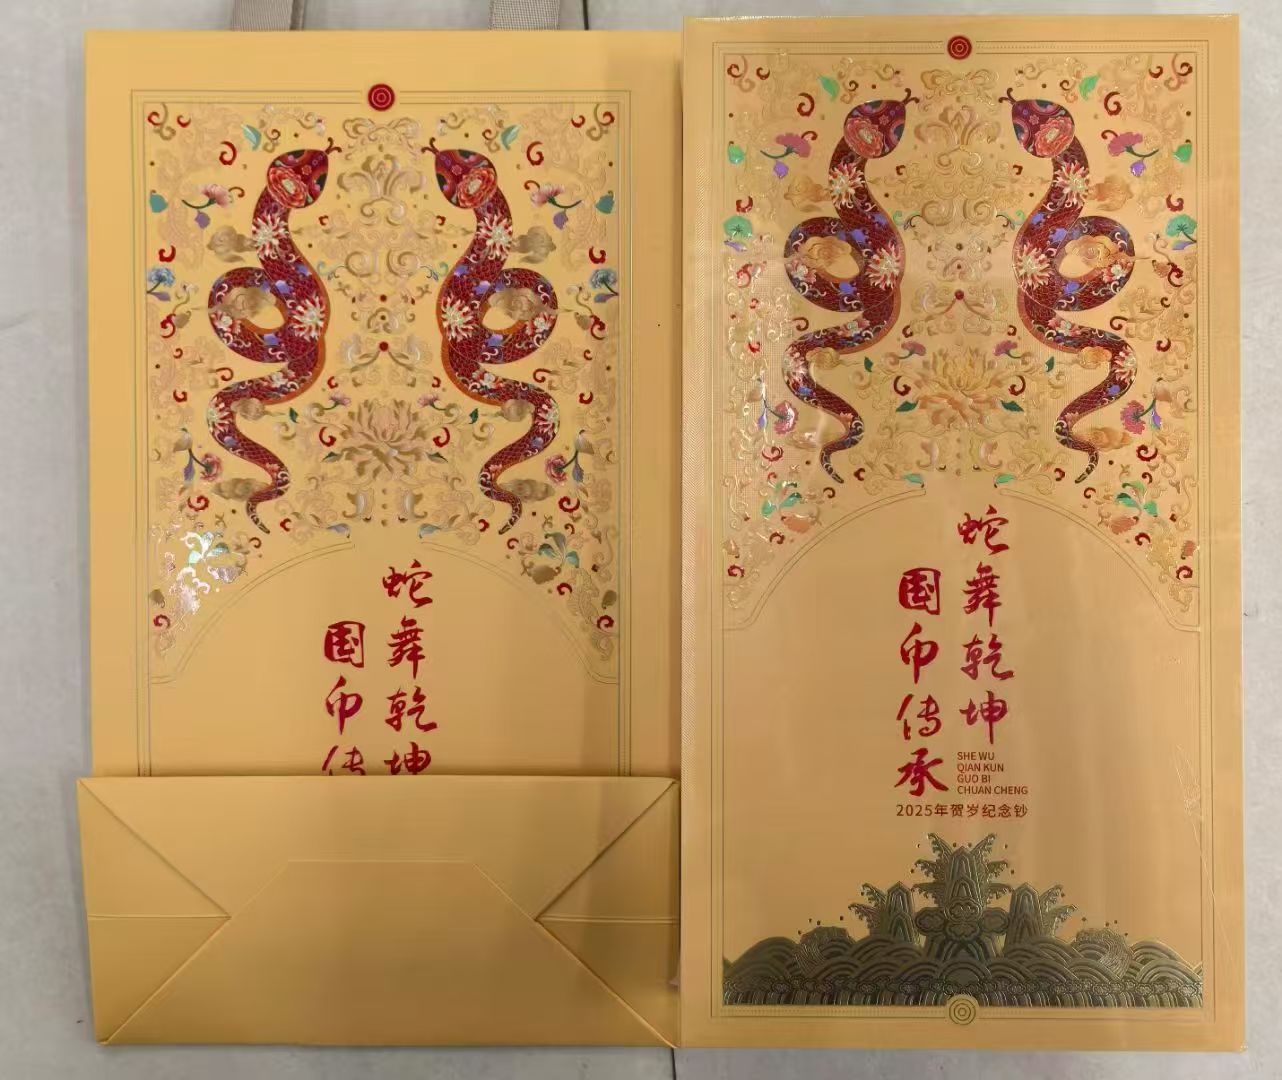 蛇舞乾坤
国币传
蛇舞乾坤
国币传承
SHE WU
QIAN KUN
GUO BI
CHUAN CHENG
2025年贺岁纪念钞